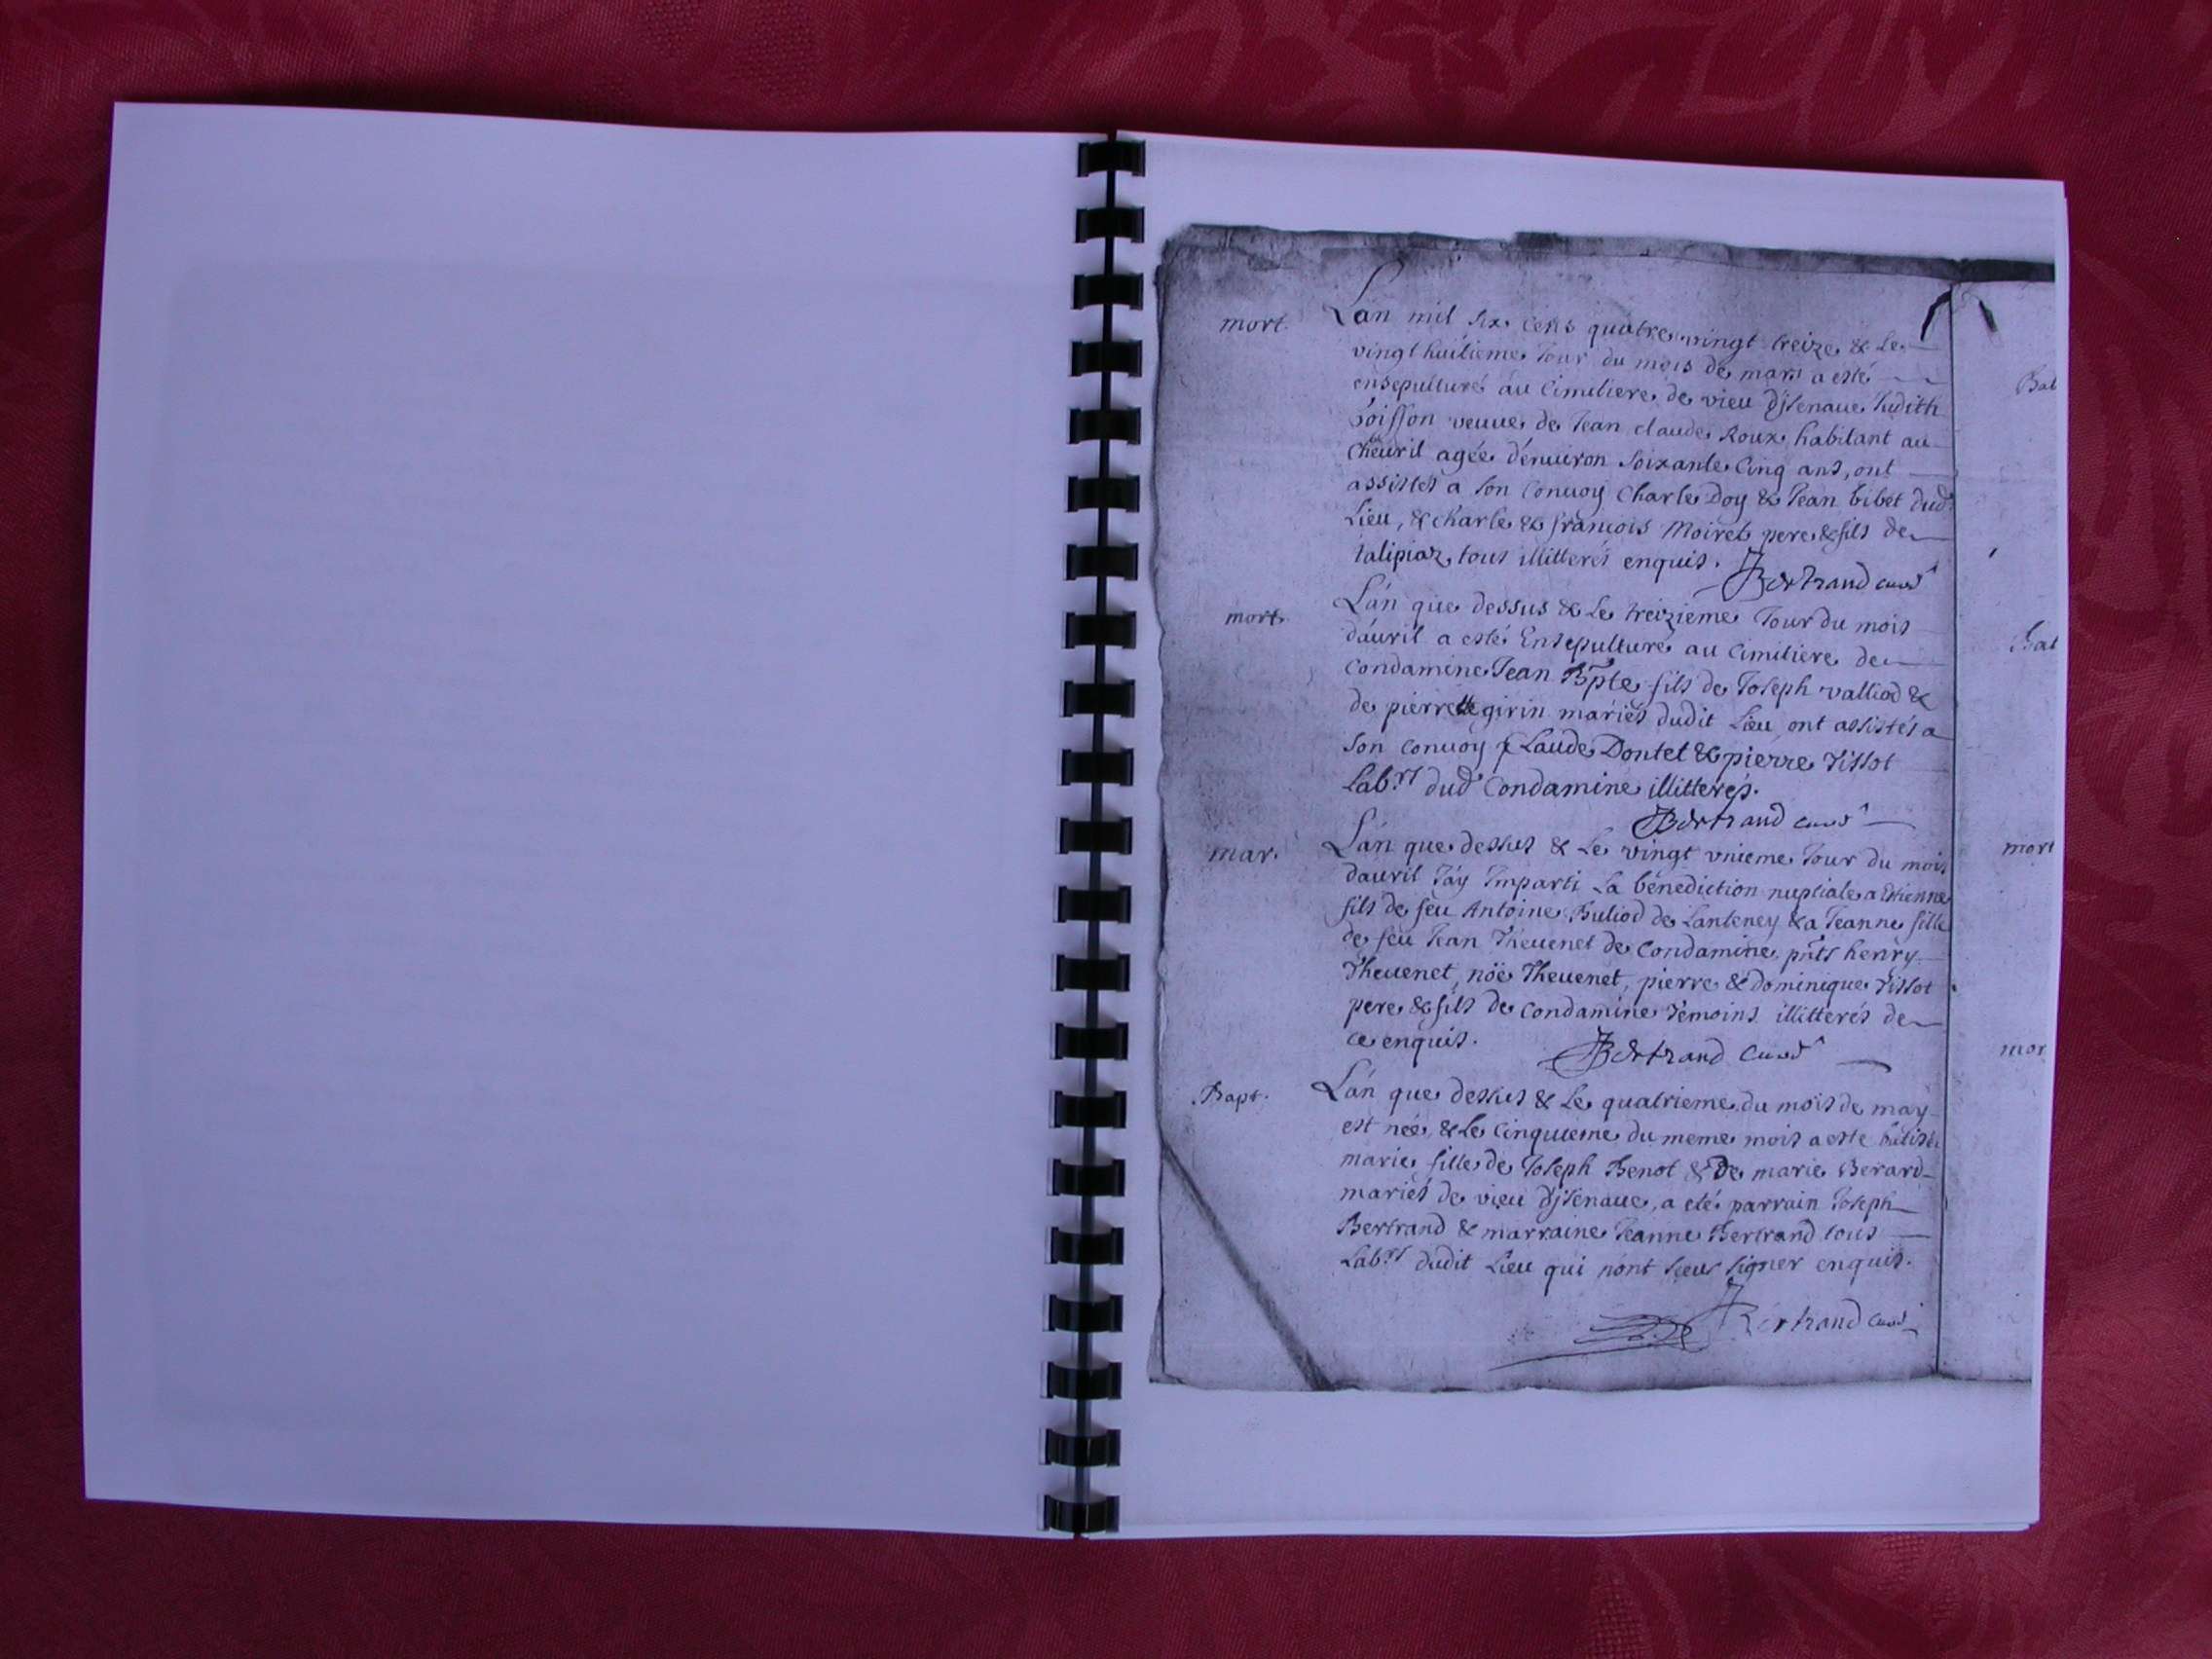 mort. Lan mil six cens quatre vingt treize & Le
vingt huitieme Jour du mois de mars a esté
ensepulturé au Cimitiere de vieu Dizenaue Judith
poisson veuue de Jean claude Roux habitant au
Cheuril agée d'enuiron Soixante Cinq ans, ont
assistés a Son Conuoy Charle Doy & Jean bibet dud.
Lieu, & charle & françois Moiret pere & fils de
talipiaz tous illitterés enquis.
JBertrand curé
mort. L'an que dessus & Le treizieme Jour du mois
d'auril a esté Ensepulturé au Cimitiere de
Condamine Jean Bpte fils de Joseph valliod &
de pierrette girin mariés dudit Lieu ont assistés a
Son conuoy Claude Dontet & pierre Tissot
Lab.rs dud Condamine illitterés.
JBertrand curé
mar. L'an que dessus & Le vingt vnieme Jour du mois
d'auril J'ay Imparti La bénediction nuptiale a Etienne
fils de feu Antoine Buliod de Lanteney & a Jeanne fille
de feu Jean Theuenet de Condamine pnts henry
Theuenet, nöe Theuenet, pierre & dominique Tissot
pere & fils de Condamine Témoins illitterés de
ce enquis. JBertrand Curé
Bapt. L'an que dessus & Le quatrieme du mois de may
est neé, & Le Cinquieme du meme mois a este batisé
marie fille de Joseph Benot & De marie Berard
mariés de vieu Dizenaue, a eté parrain Joseph
Bertrand & marraine Jeanne Bertrand tous
Lab.rs dudit Lieu qui n'ont sceu signer enquis.
JBertrand curé
Bat
Bat
mort
mor